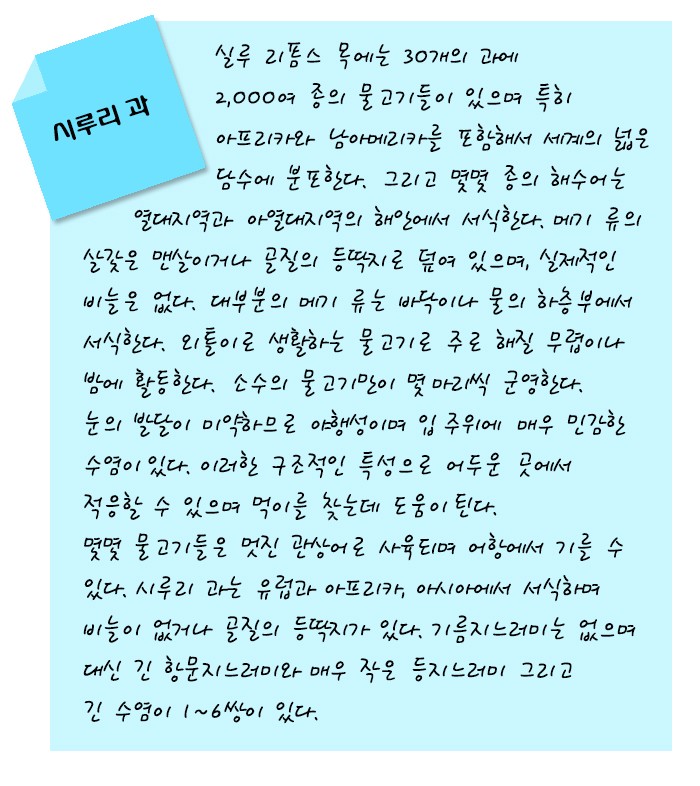 시루리 과
실루 리폼스 목에는 30개의 과에
2,000여 종의 물고기들이 있으며 특히
아프리카와 남아메리카를 포함해서 세계의 넓은
담수에 분포한다. 그리고 몇몇 종의 해수어는
열대지역과 아열대지역의 해안에서 서식한다. 메기 류의
살갗은 맨살이거나 골질의 등딱지로 덮여 있으며, 실제적인
비늘은 없다. 대부분의 메기 류는 바닥이나 물의 하층부에서
서식한다. 외톨이로 생활하는 물고기로 주로 해질 무렵이나
밤에 활동한다. 소수의 물고기만이 몇 마리씩 군영한다.
눈의 발달이 미약하므로 야행성이며 입 주위에 매우 민감한
수염이 있다. 이러한 구조적인 특성으로 어두운 곳에서
적응할 수 있으며 먹이를 찾는데 도움이 된다.
몇몇 물고기들은 멋진 관상어로 사육되며 어항에서 기를 수
있다. 시루리 과는 유럽과 아프리카, 아시아에서 서식하며
비늘이 없거나 골질의 등딱지가 있다. 기름지느러미는 없으며
대신 긴 항문지느러미와 매우 작은 등지느러미 그리고
긴 수염이 1~6쌍이 있다.